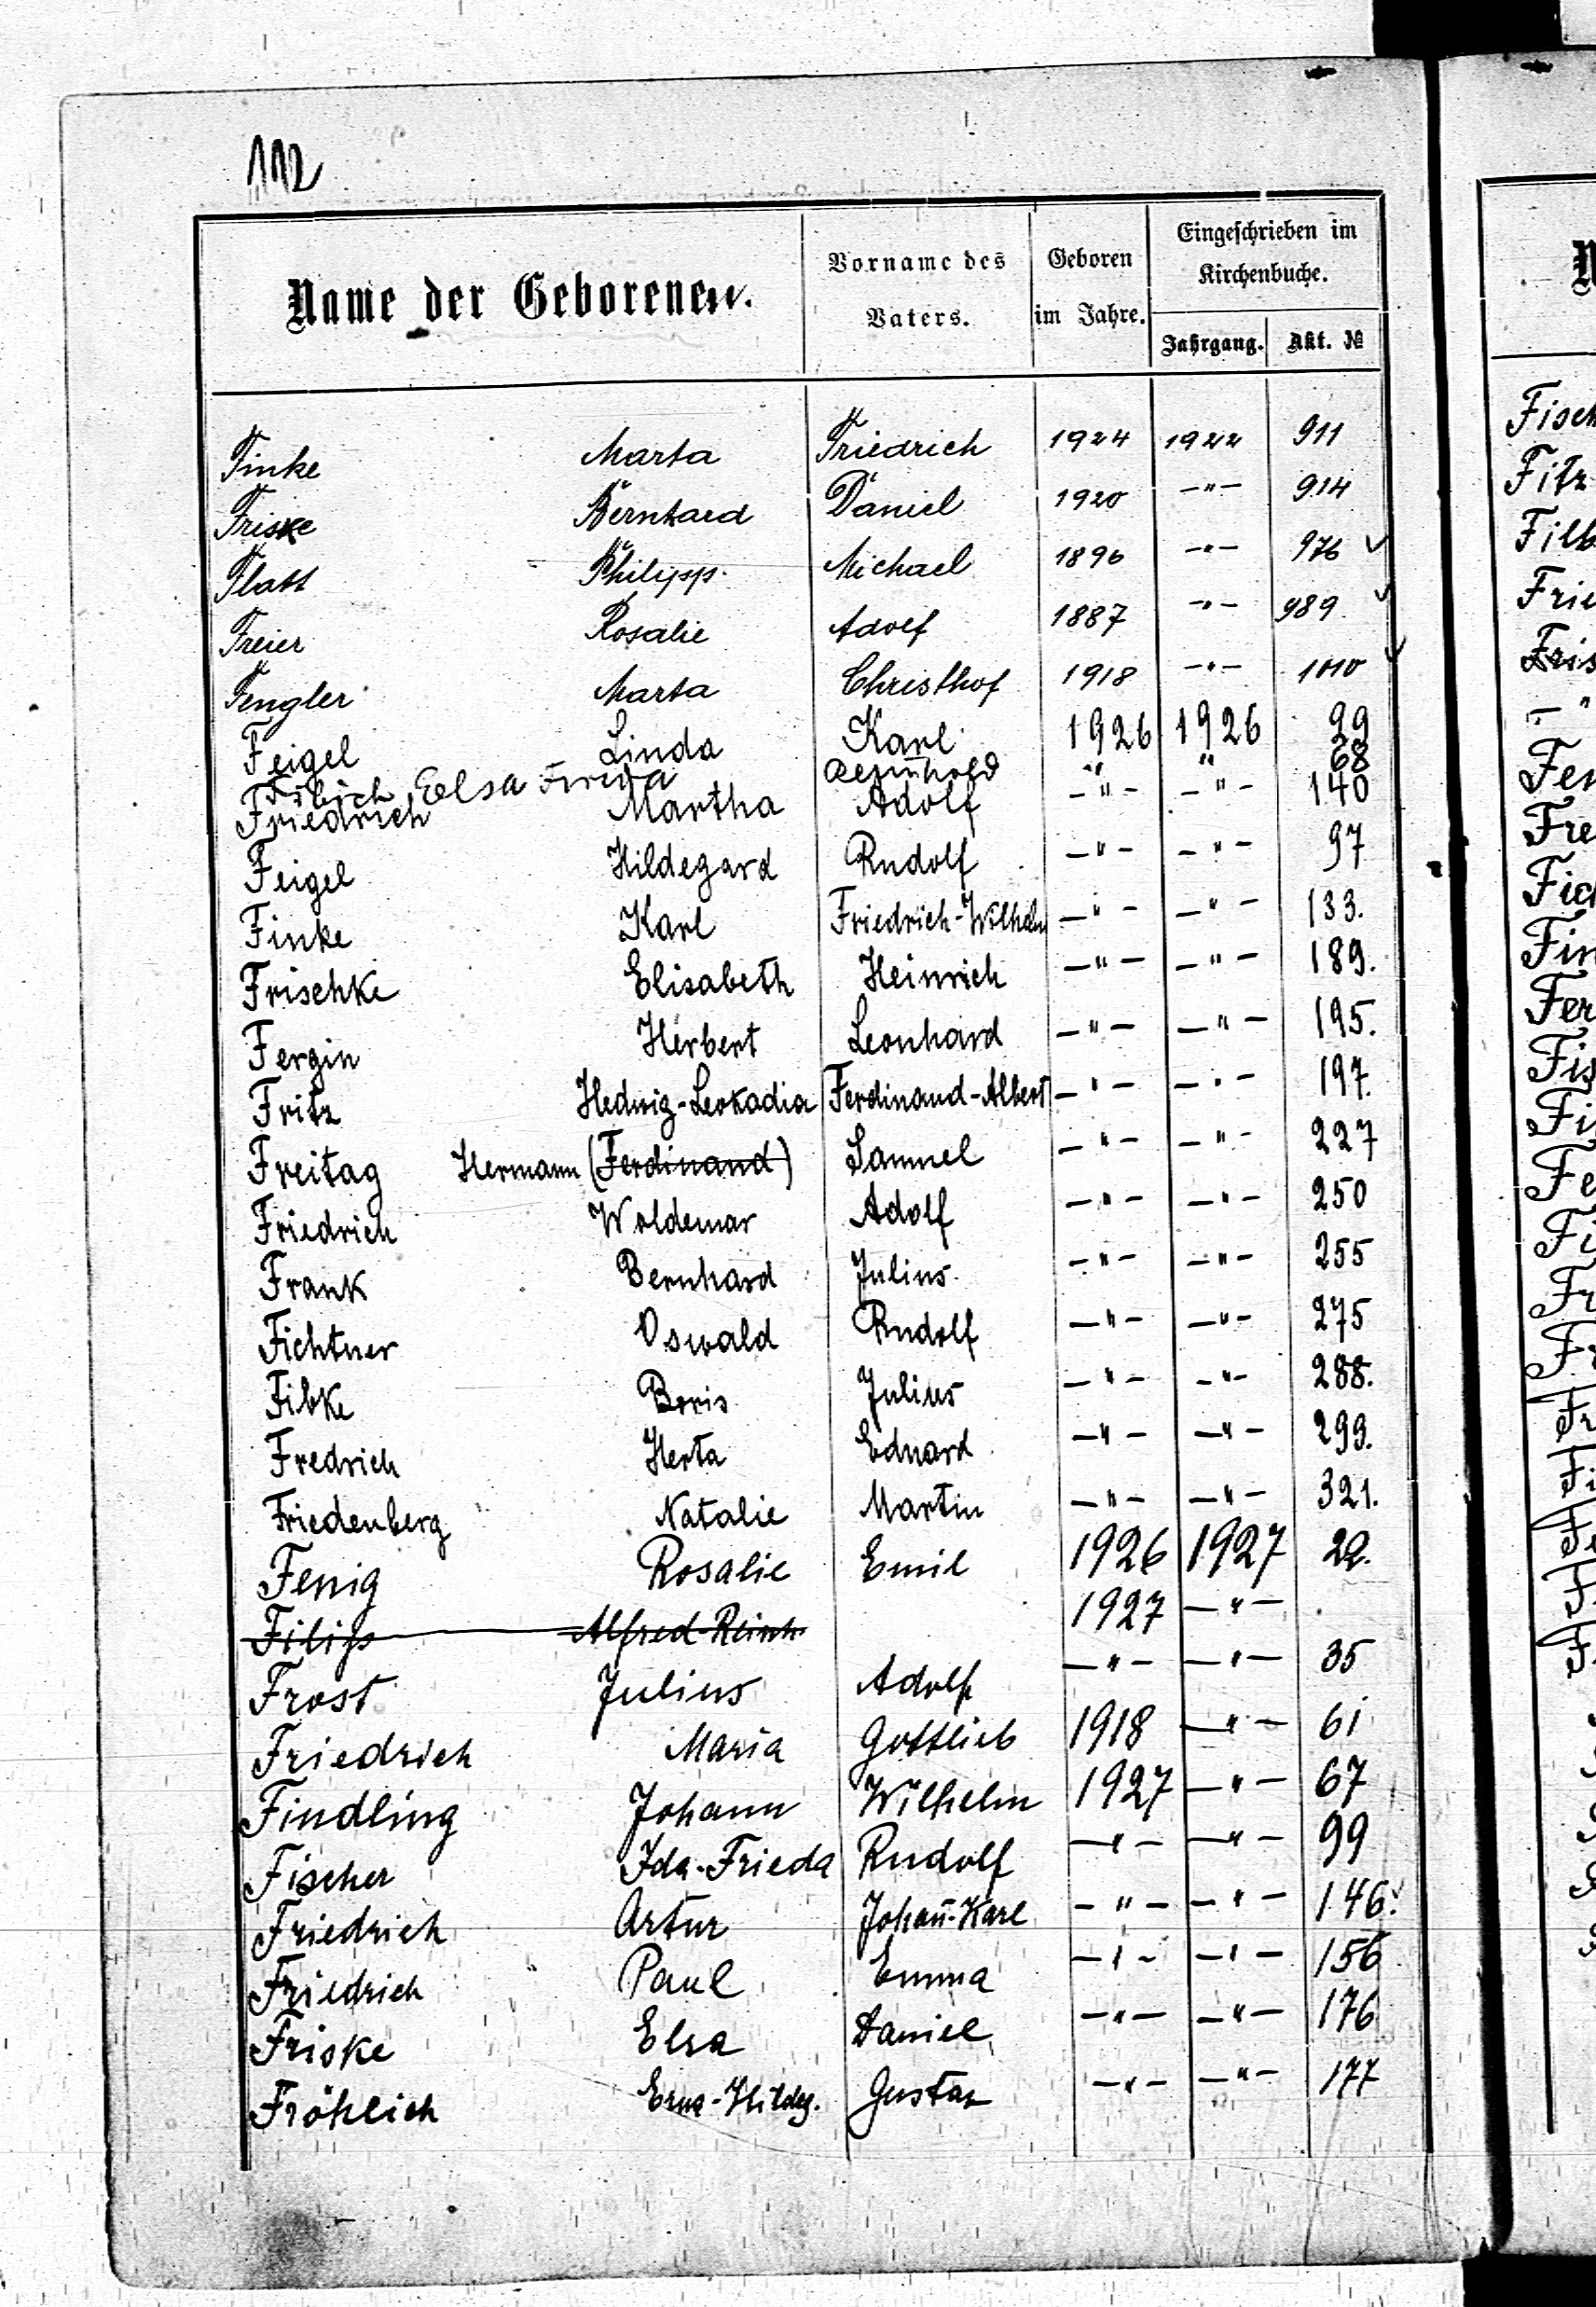 112
Name der Geborenen.
Vorname des Vaters.
Geboren im Jahre.
Eingeschrieben im Kirchenbuche.
Jahrgang. Akt. №
Finke Marta Friedrich 1924 1922 911
Friske Bernhard Daniel 1920 -"- 914
Flatt Philipp Michael 1896 -"- 976 ✓
Freier Rosalie Adolf 1887 -"- 989 ✓
Fengler Marta Christhof 1918 -"- 1010 ✓
Feigel Linda Karl 1926 1926 29
Elsa Frieda Reinhold " " 68
Friedrich Martha Adolf -"- -"- 140
Feigel Hildegard Rudolf -"- -"- 97
Finke Karl Friedrich-Wilhelm -"- -"- 133.
Frischke Elisabeth Heinrich -"- -"- 189.
Fergin Herbert Leonhard -"- -"- 195.
Fritz Hedwig-Leokadia Ferdinand-Albert -"- -"- 197.
Freitag Hermann (Ferdinand) Samuel -"- -"- 227
Friedrich Woldemar Adolf -"- -"- 250
Frank Bernhard Julius -"- -"- 255
Fichtner Oswald Rudolf -"- -"- 275
Fibke Boris Julius -"- -"- 288.
Fredrich Herta Eduard -"- -"- 299.
Friedenberg Natalie Martin -"- -"- 321.
Fenig Rosalie Emil 1926 1927 22.
Filip Alfred-Reinh. 1927 -"-
Frost Julius Adolf -"- -"- 35
Friedrich Maria Gottlieb 1918 -"- 61
Findling Johann Wilhelm 1927 -"- 67
Fischer Ida-Frieda Rudolf -"- -"- 99
Friedrich Artur Johañ-Karl -"- -"- 146.
Friedrich Paul Emma -"- -"- 156
Friske Elsa Daniel -"- -"- 176
Fröhlich Erna-Hildeg. Gustav -"- -"- 177